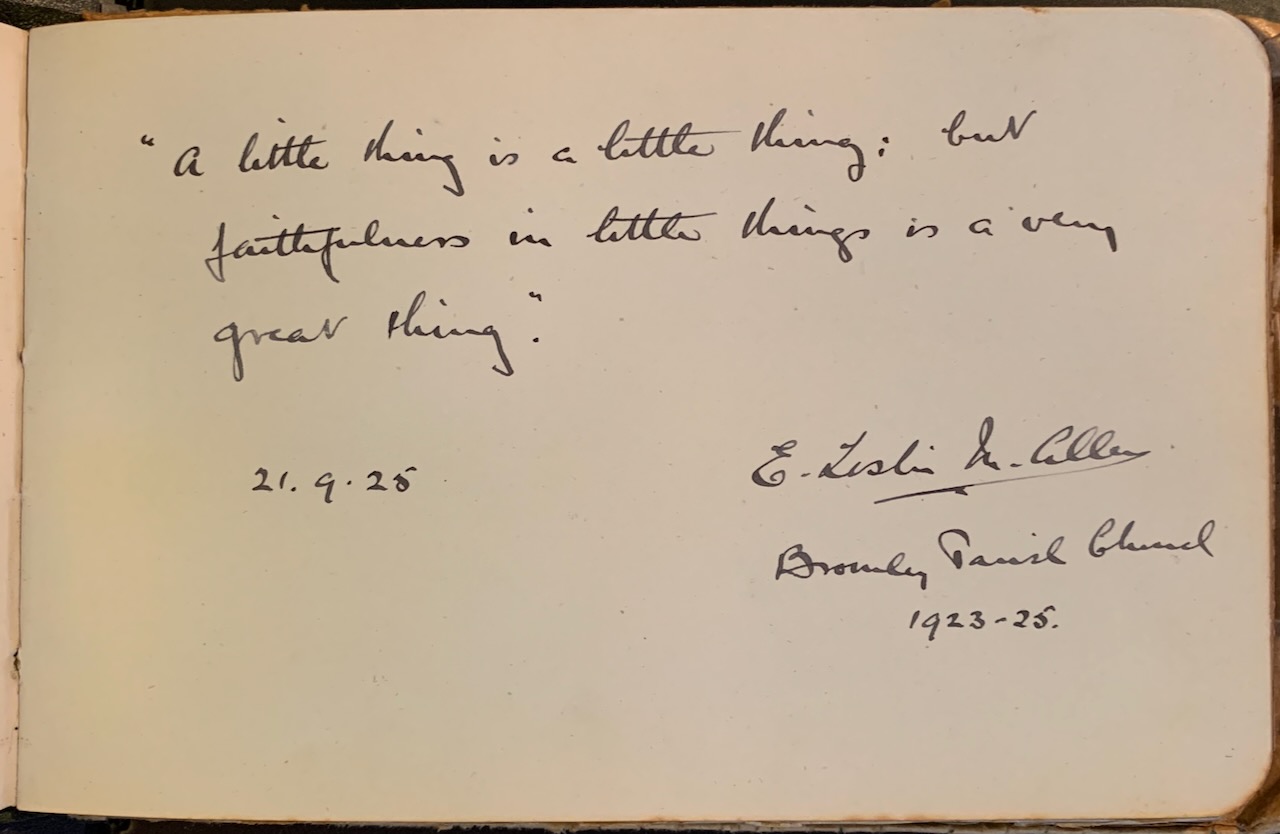 "A little thing is a little thing; but
faithfulness in little things is a very
great thing".
21.9.25
E. Leslie M. Allen
Bromley Parish Church
1923-25.